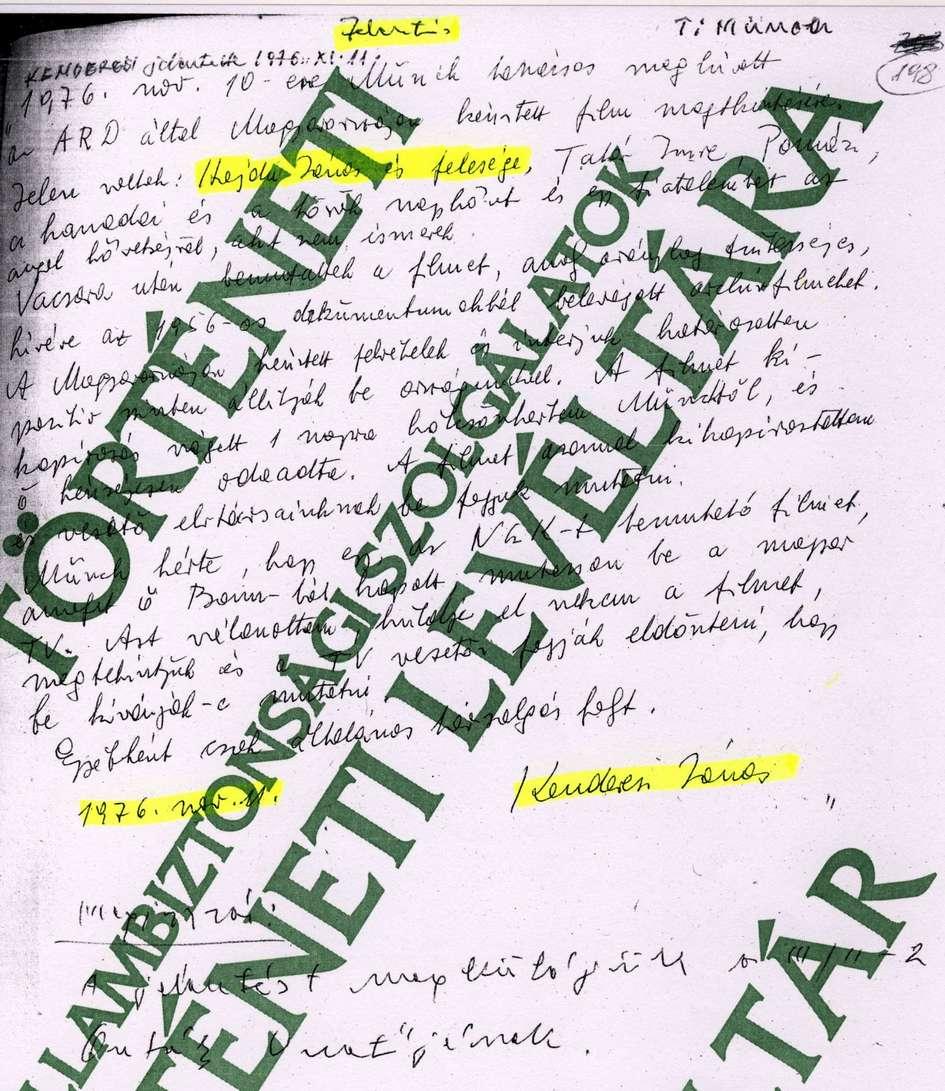 Jelentés
T: Münch
198
KENDERESI jelentése 1976. XI. 11.
1976. nov. 10-én Münch tanácsos meghívott
az ARD által Magyarországon készített film megtekintésére.
Jelen voltak: Hajdu János és felesége, Tatár Imre, Pálházi,
a kanadai és a török nagykövet és egy fiatalembert az
angol követségről, akit nem ismerek.
Vacsora után bemutatták a filmet, amely tűrhetős,
kivéve az 1956-os dokumentumokból belevágott archívfilmeket.
A Magyarországon készített felvételek és interjúk határozottan
pozitív színben állítják be országunkat. A filmet ki-
kapirozás végett 1 napra kölcsönkértem Münchtől, és
ő készségesen odaadta. A filmet azonnal kikapiroztattam
és vezető elvtársainknak be fogjuk mutatni.
Münch kérte, hogy egy az NSZK-t bemutató filmet,
amelyet ő Bonn-ból kapott mutasson be a magyar
TV. Azt válaszoltam, küldje el nekem a filmet,
megtekintjük és a TV vezetői fogják eldönteni, hogy
be kívánják-e mutatni.
Egyébként csak általános társalgás folyt.
1976. nov. 11.
Kenderesi János
"
Megjegyzés:
A jelentést megküldjük a III/II-2
Osztály Vezetőjének.
TÖRTÉNETI
ÁLLAMBIZTONSÁGI SZOLGÁLATOK
TÖRTÉNETI LEVÉLTÁRA
TÁR